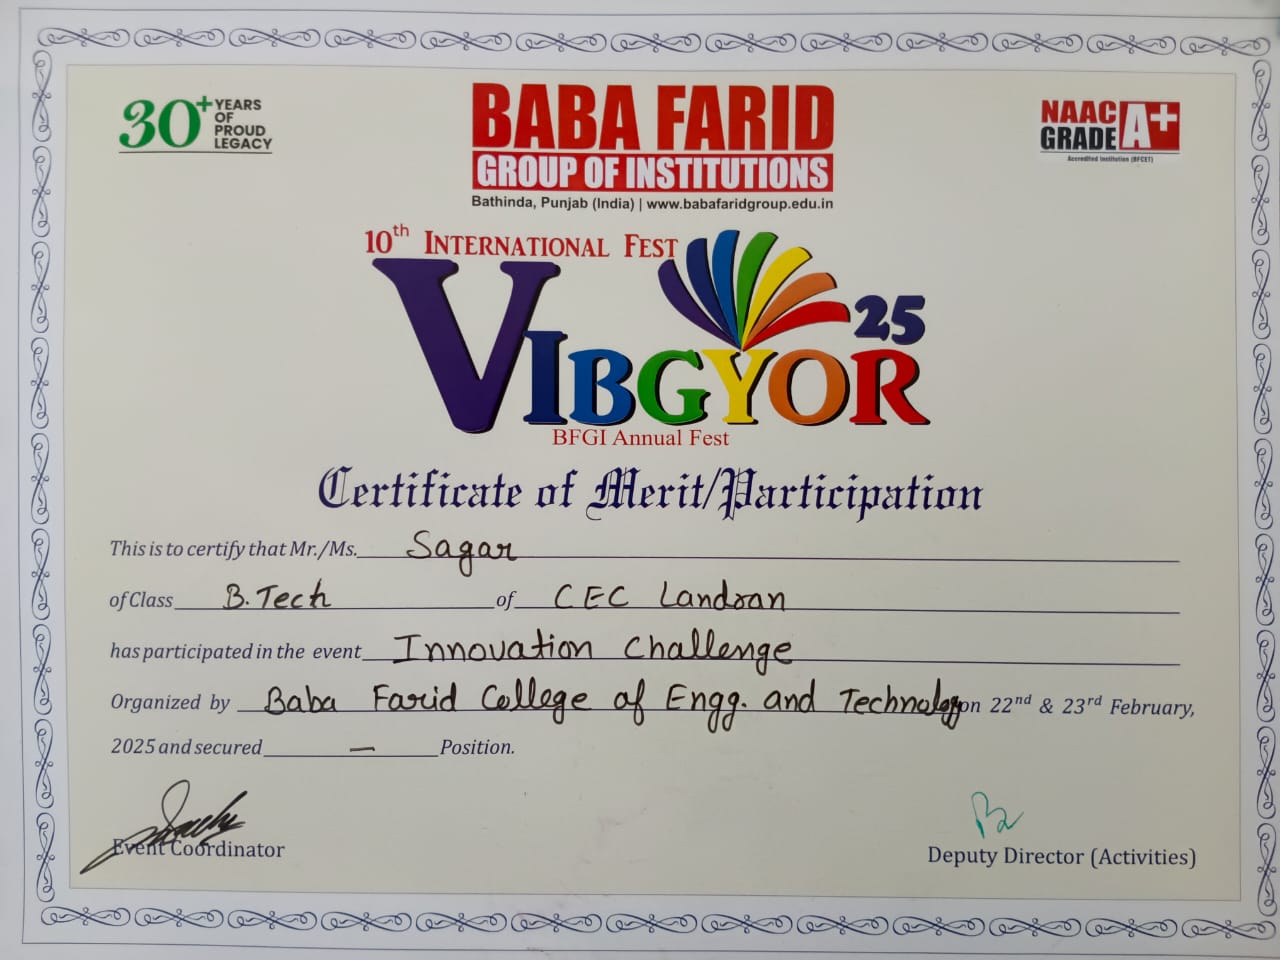 30+ YEARS OF PROUD LEGACY
BABA FARID
GROUP OF INSTITUTIONS
Bathinda, Punjab (India) | www.babafaridgroup.edu.in
NAAC GRADE A+
Accredited Institution (BFCET)
10th INTERNATIONAL FEST
VIBGYOR 25
BFGI Annual Fest
Certificate of Merit/Participation
This is to certify that Mr./Ms. Sagar
of Class B.Tech of CEC Landran
has participated in the event Innovation Challenge
Organized by Baba Farid College of Engg. and Technology on 22nd & 23rd February,
2025 and secured — Position.
Event Coordinator
Deputy Director (Activities)